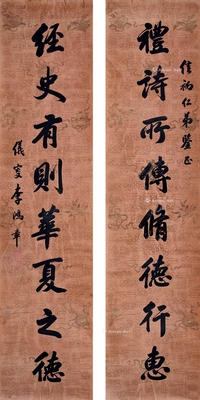 佳炳仁弟鑒正
禮詩所傳脩德行惠
經史有則華夏之德
儀叟李鴻章